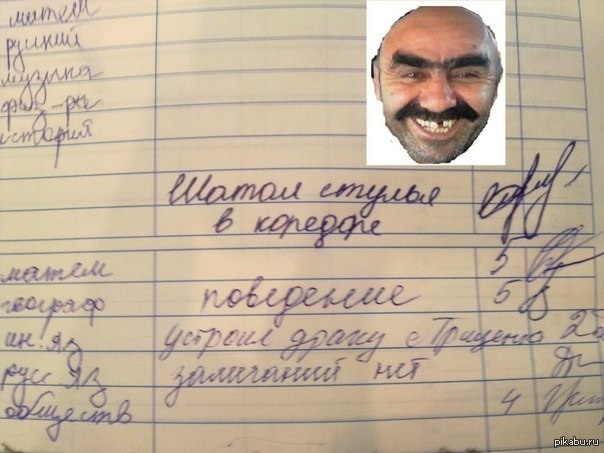 матем
руский
музыка
физ-ра
история
Шатал стулья
в коредоре
матем 5
географ поведение 5
ин.яз устроил драку с Гриценко 2
рус яз замечаний нет
обществ 4
pikabu.ru